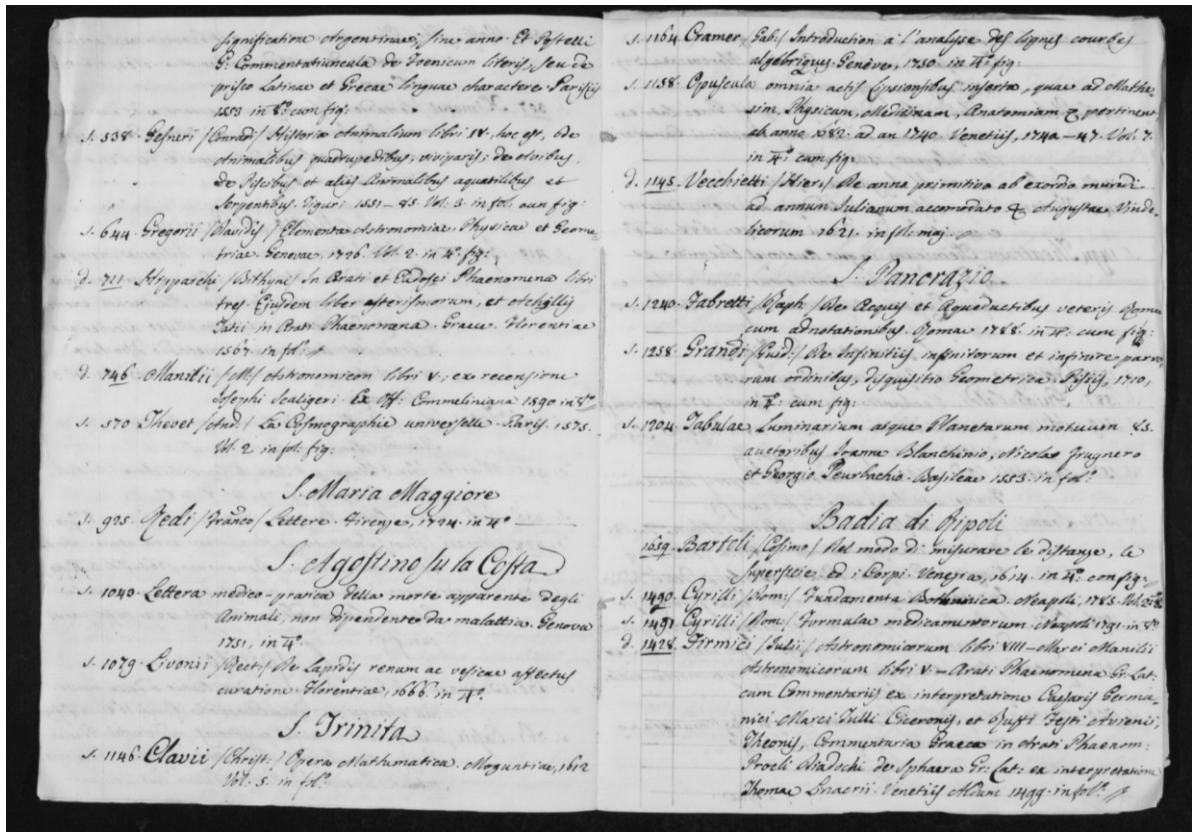 significatione Argentinae, sine anno. Et Postelli
G: Commentatiuncula de Foenicum literis, seu de
prisco Latinae et Grecae linguae charactere. Parisiis
1553 in 8.° cum fig:
s. 538. Gesneri /Conradi/ Historiae Animalium libri IV. hoc est, de
Animalibus quadrupedibus, viviparis; de Avibus,
de Piscibus et aliis Animalibus aquatilibus et
Serpentibus. Tiguri 1551 - 85. Vol: 3. in fol. cum fig:
s. 644. Gregorii /Davidis/ Elementa Astronomiae Physicae et Geome-
triae. Genevae 1726. Vol. 2. in 4.° fig:
d. 711. Hipparchi /Bithyni/ In Arati et Eudoxi Phaenomena libri
tres. Ejusdem liber asterismorum, et Achillis
Tatii in Arati Phaenomena. Graece. Florentiae
1567. in fol.
d. 746. Manilii /M:/ Astronomicon libri V. ex recensione
Josephi Scaligeri. Ex Off: Commeliniana 1590 in 8.°
s. 570. Thevet /And:/ La Cosmographie universelle. Paris. 1575.
Vol. 2. in fol: fig:
S. Maria Maggiore
s. 925. Redi /Franco/ Lettere. Firenze, 1724. in 4.°
S. Agostino su la Costa
s. 1040. Lettera medico-pratica della morte apparente degli
Animali, non dipendente da malattia. Genova
1751, in 4.°
s. 1079. Livonii /Recti/ De Lapidis renum ac vesicae affectus
curatione. Florentiae, 1668. in 4.°
S. Trinita
s. 1146. Clavii /Christ:/ Opera Mathematica. Moguntiae, 1612
Vol: 5. in fol.°
s. 1164. Cramer /Gab:/ Introduction à l'analyse des lignes courbes
algébriques. Genève, 1750. in 4.° fig:
s. 1158. Opuscula omnia actis Lipsiensibus inserta, quae ad Mathe-
sim, Physicam, Medicinam, Anatomiam &. pertinent,
ab anno 1682. ad an 1740. Venetiis, 1740. - 47. Vol: 7.
in 4.° cum fig:
d. 1145. Vecchietti /Hier:/ De anno primitivo ab exordio mundi
ad annum Iulianum accomodato &. Augustae Vinde-
licorum 1621. in fol: maj:
S. Pancrazio
s. 1240. Fabretti /Raph:/ De Acquis et Aqueductibus veteris Romae
cum adnotationibus. Romae 1788. in 4.° cum fig:
s. 1258. Grandi /Guid:/ De Infinitis infinitorum et infinite parvo-
rum ordinibus, disquisitio Geometrica. Pisis, 1710,
in 4.° cum fig:
s. 1204. Tabulae Luminarium atque Planetarum motuum 85.
auctoribus Joanne Blanchinio, Nicolao Prugnero
et Georgio Peurbachio. Basileae 1553. in fol.°
Badia di Ripoli
1659. Bartoli /Cosimo/ Del modo di misurare le distanze, le
superficie, ed i Corpi. Venezia, 1614. in 4.° con fig:
s. 1490. Cyrilli /Dom:/ Fundamenta Bothanica. Neapoli, 1785. Vol: 2 in 8.°
s. 1491. Cyrilli /Dom:/ Formulae medicamentorum. Neapoli 1791. in 8.°
d. 1428. Firmici /Julii/ Astronomicorum libri VIII - Marci Manilii
Astronomicorum libri V. - Arati Phaenomena Gr: Lat:
cum Commentariis ex interpretatione Caesaris Germa-
nici. Marci Tulli Ciceronis, et Ruffi Festi Avieni;
Theonis, Commentaria Graeca in Arati Phaenom:
Procli Diadochi de Sphaera Gr: Lat: ex interpretatione
Thomae Linacrii. Venetiis Aldum 1499. in fol.°